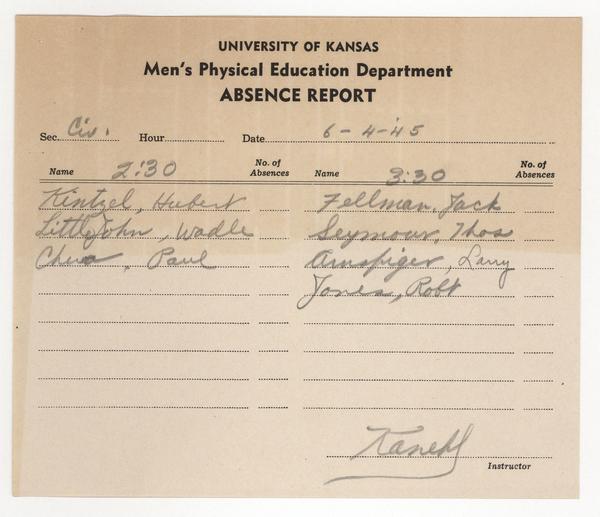 UNIVERSITY OF KANSAS
Men's Physical Education Department
ABSENCE REPORT
Sec. Civ. Hour Date 6-4-45
Name 2:30 No. of Absences Name 3:30 No. of Absences
Kintzel, Hubert Fellman, Jack
LittleJohn, Wadle Seymour, Thos
Paul Larry
Jones, Robt
Kanehl
Instructor